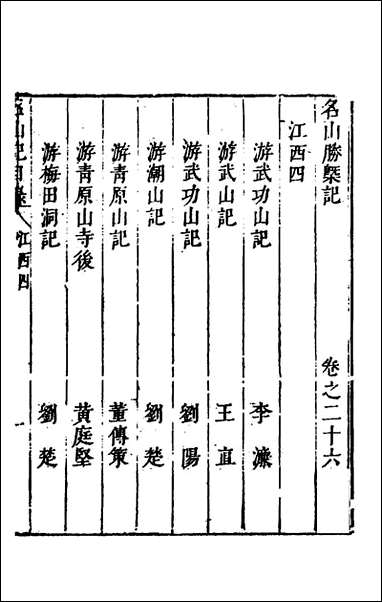 名山勝槩記　卷之二十六
江西四
游武功山記　李濂
游武山記　王直
游武功山記　劉陽
游潮山記　劉楚
游青原山記　董傳策
游青原山寺後　黃庭堅
游梅田洞記　劉楚
名山記目錄　江西四　一